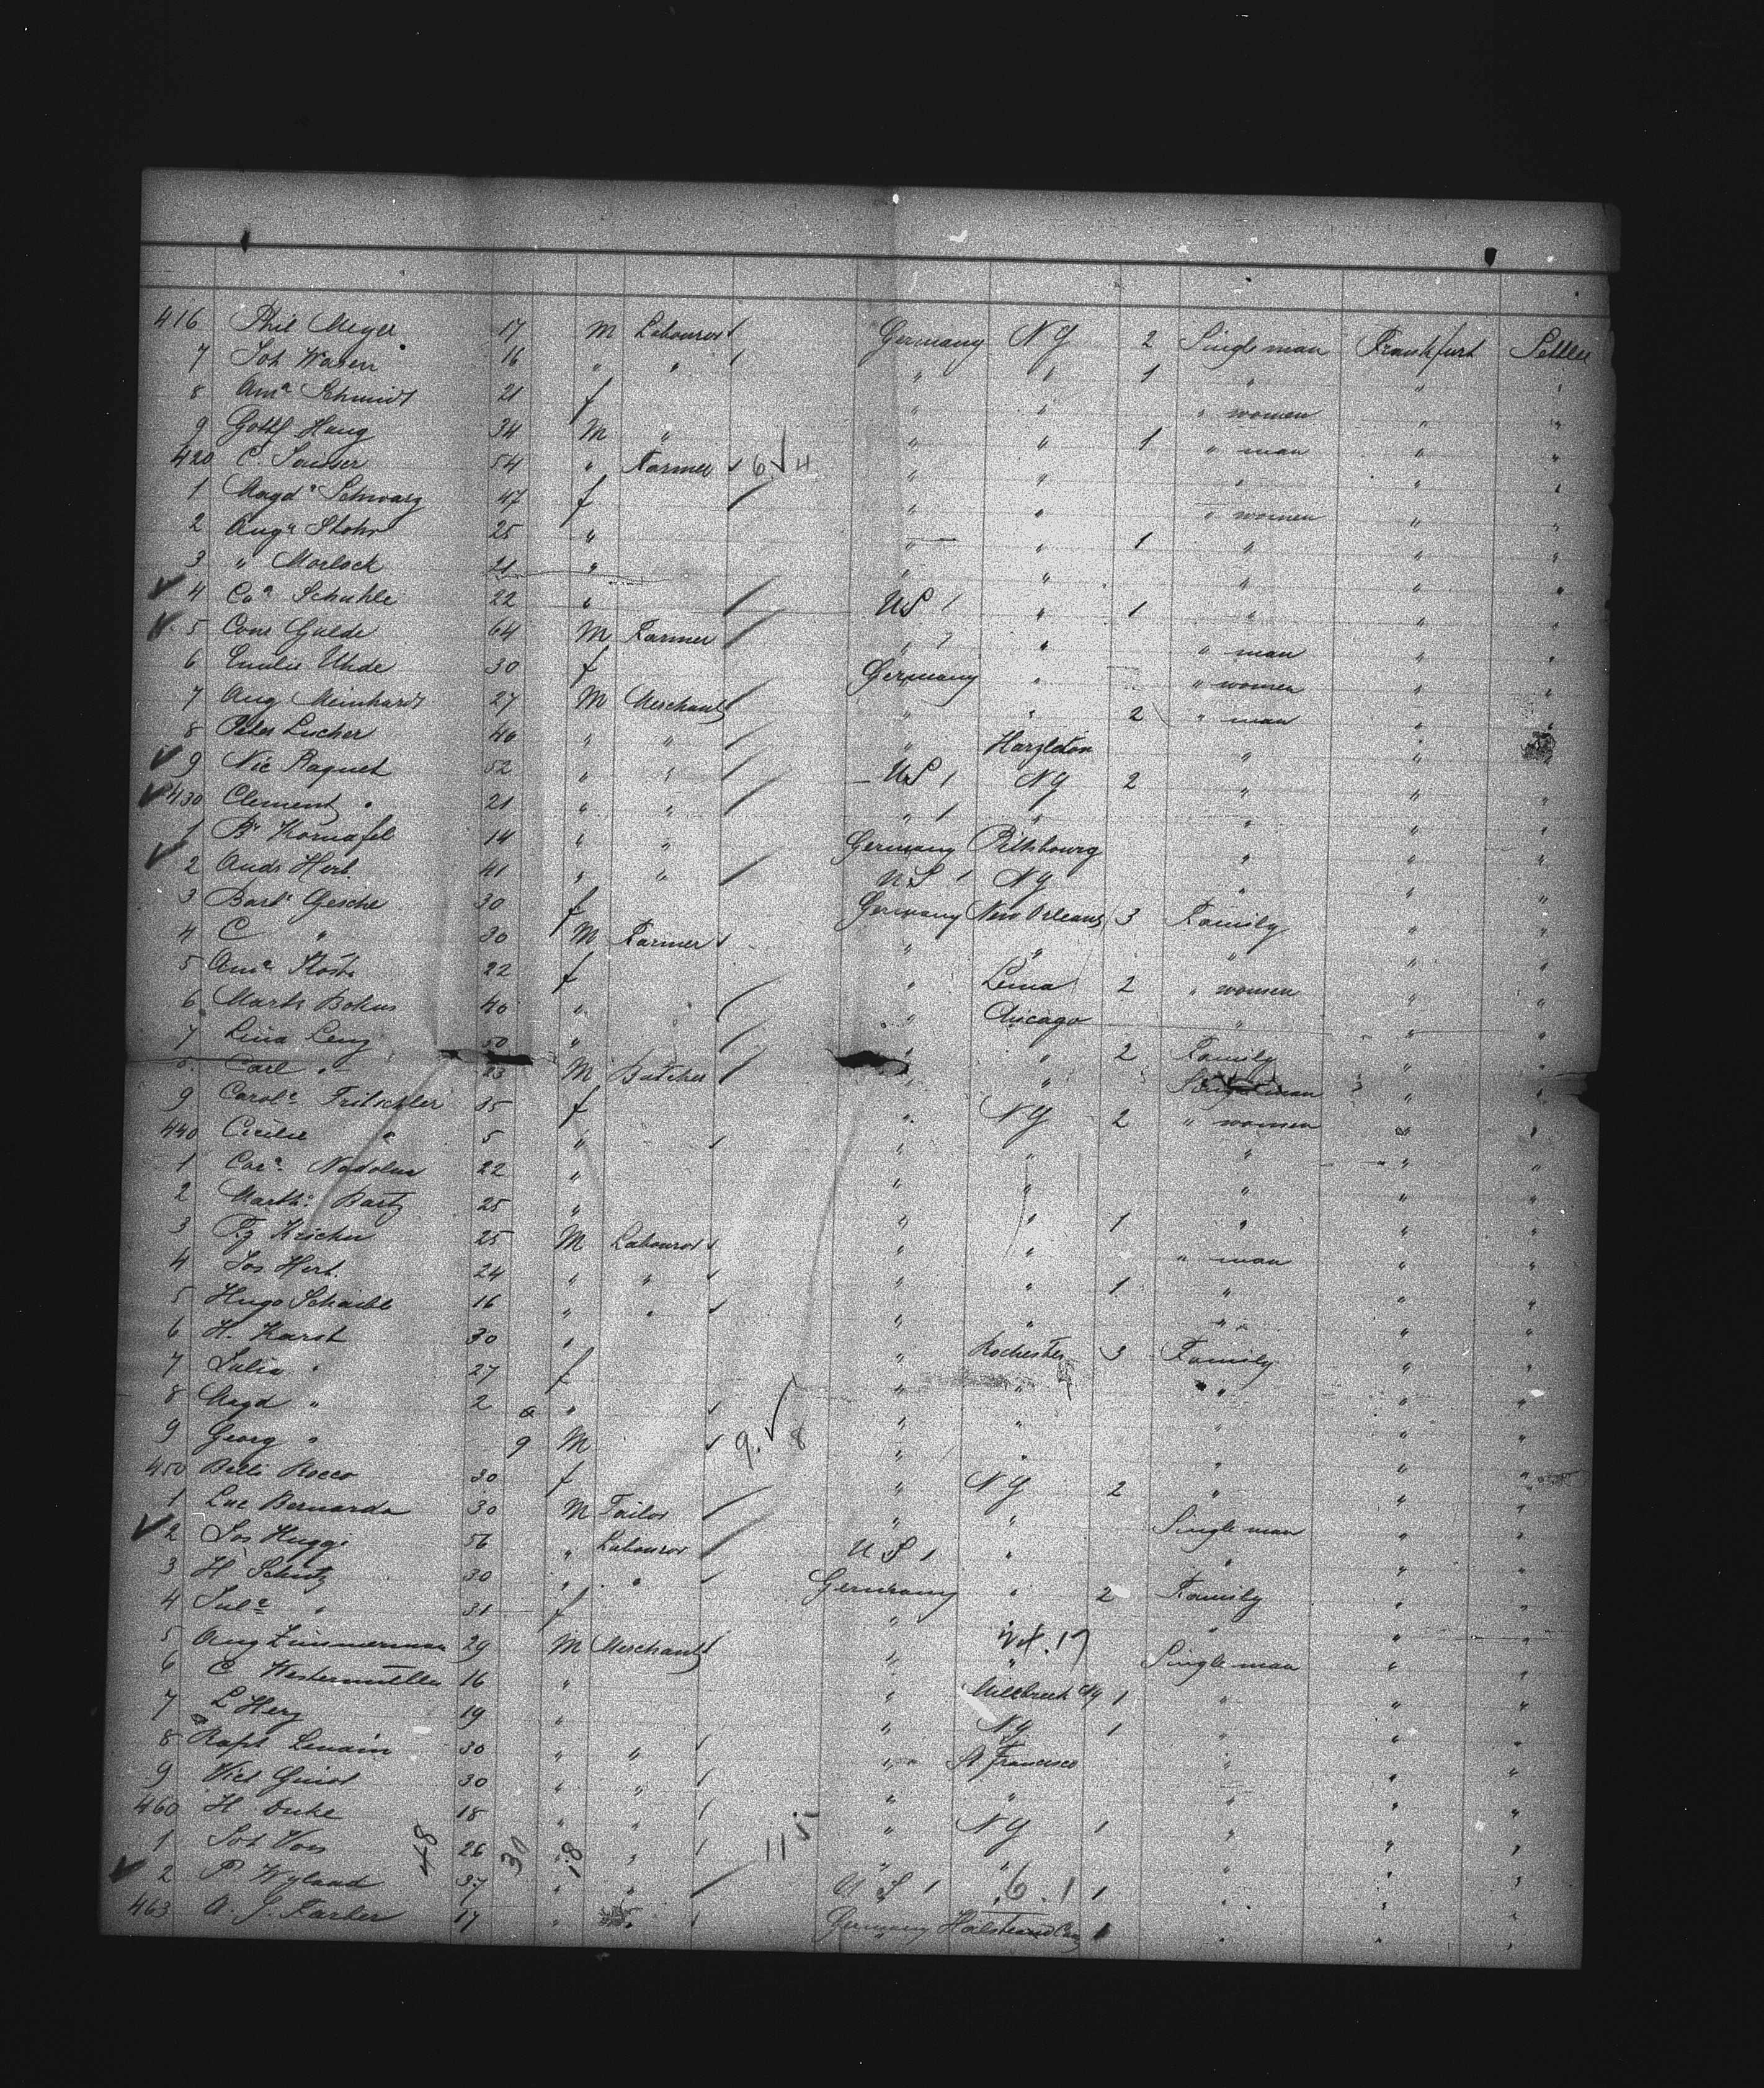 416 Phil Meyer 17 M Labourer Germany NY 2 Single man Frankfurt Settler
7 Joh Waben 16 " " " " 1 " " "
8 Ama Schmidt 21 f " " " women " "
9 Gottf Haug 34 M " " " 1 " man " "
420 C. Sauser 54 " Farmer 6 4 " " " " "
1 Magd a Schwarz 47 f " " " women " "
2 Aug a Stohr 25 " " " 1 " " "
3 " Morlock 21 " " " " " "
4 Ca a Schuhle 22 " US " 1 " " "
5 Cons Gulde 64 M Farmer " " " man " "
6 Emilie Uhde 30 f Germany " " women " "
7 Aug Meinhardt 27 M Merchant " " 2 " man " "
8 Peter Lucher 40 " " " Hazleton " "
9 Nic Paquet 52 " " US NY 2 " " "
430 Clement " 21 " " " " " " "
1 Br Kornafel 14 " " Germany Pittsbourg " " "
2 Andr Herb. 41 " " US NY " " "
3 Barb a Gesche 30 f Germany New Orleans 3 Family " "
4 C " 30 M Farmer " " " " "
5 Ama 22 f " Lima 2 " women " "
6 Marts Bokus 40 " " Chicago " " "
7 Lina Leng 50 " " " 2 Family " "
8 Carl " 23 M Butcher " " Single man " "
9 Carol a Fritschler 35 f " NY 2 " women " "
440 Cecilie " 5 " " " " " "
1 Car a Nadolus 22 " " " " " "
2 Marth a Bartz 25 " " " 1 " " "
3 Fz Kricher 25 M Labourer " " " man " "
4 Jos Herb. 24 " " " " 1 " " "
5 Hugo Schaible 16 " " " " " " "
6 H. Karst 30 " " Rochester 3 Family " "
7 Julia " 27 f " " " " "
8 Magd " 2 a " " " " " "
9 Georg " 9 M 9. 8 " " " " "
450 Belli Rocco 30 f " NY 2 " " "
1 Luc Bernarda 30 M Tailor " " Single man " "
2 Jos Huggi 56 " Labourer US " " " "
3 H Schutz 30 " " Germany " 2 Family " "
4 Jul a " 31 f " " " " "
5 Aug Zimmerman 29 M Merchant " " 17 Single man " "
6 C Westermuller 16 " " Millbrook NY 1 " " "
7 L Herz 19 " " NY 1 " " "
8 Raph Lenain 30 " " " St Francisco " " "
9 Vict Guiot 30 " " " " " " "
460 H Duke 18 " " " NY 1 " " "
1 Joh Voss 48 26 30 18 " 11 " " " " "
2 P Wyland 37 " " US 6. 1 1 " " "
463 A. J. Farber 17 " " Germany Halstead 1 " " "